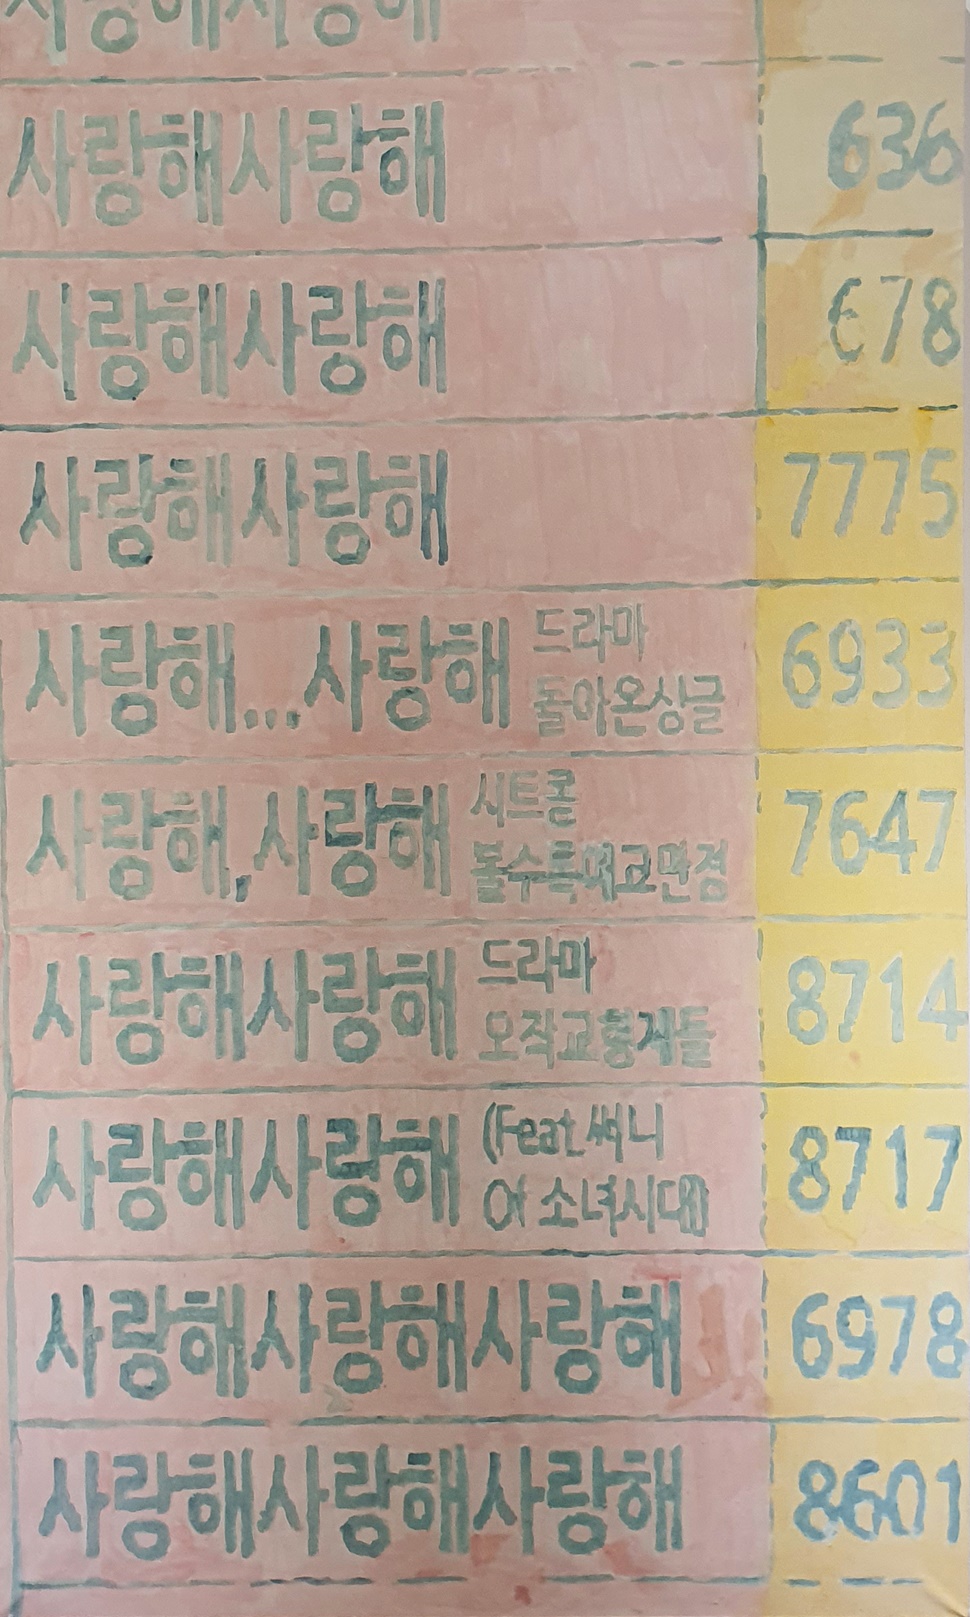 사랑해사랑해
사랑해사랑해 636
사랑해사랑해 678
사랑해사랑해 7775
사랑해...사랑해 드라마 6933
돌아온싱글
사랑해,사랑해 시트콤 7647
볼수록애교만점
사랑해사랑해 드라마 8714
오작교형제들
사랑해사랑해 (Feat.써니 8717
Of 소녀시대)
사랑해사랑해사랑해 6978
사랑해사랑해사랑해 8601